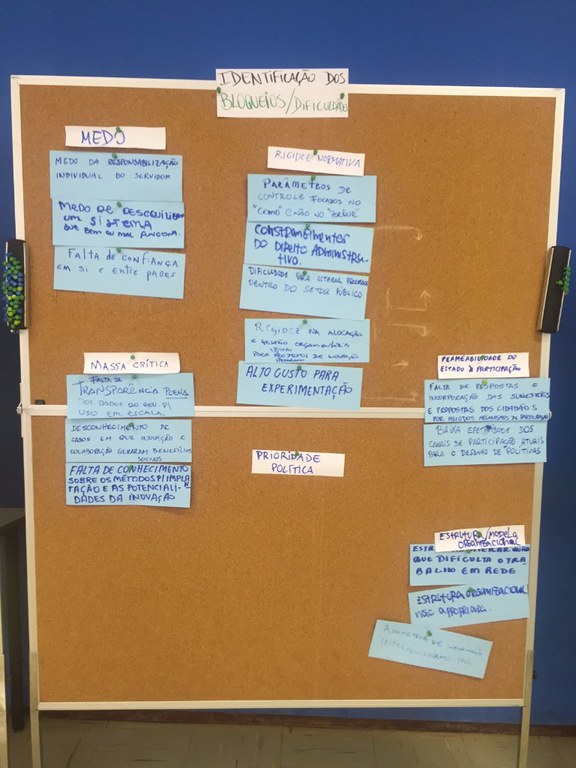 IDENTIFICAÇÃO DOS
BLOQUEIOS/DIFICULDADE
MEDO
MEDO DA RESPONSABILIZAÇÃO
INDIVIDUAL DO SERVIDOR
MEDO DE DESEQUILIBRAR
UM SISTEMA
QUE BEM OU MAL FUNCIONA.
FALTA DE CONFIANÇA
EM SI E ENTRE PARES
RIGIDEZ NORMATIVA
PARÂMETROS DE
CONTROLE FOCADOS NO
"COMO" E NÃO NO "PORQUE"
CONSTRANGIMENTOS
DO DIREITO ADMINISTRA-
TIVO.
DIFICULDADE PARA LITERAR
DENTRO DO SETOR PÚBLICO
RIGIDEZ NA ALOCAÇÃO
E GESTÃO ORÇAMENTÁRIA
PARA PROJETOS DE INOVAÇÃO
ALTO CUSTO PARA
EXPERIMENTAÇÃO
MASSA CRÍTICA
FALTA DE
TRANSPARÊNCIA PLENA
DOS DADOS DO GOV. P/
USO EM ESCALA.
DESCONHECIMENTO DE
CASOS EM QUE INOVAÇÃO E
COLABORAÇÃO GERARAM BENEFÍCIOS
SOCIAIS
FALTA DE CONHECIMENTO
SOBRE OS MÉTODOS P/IMPLA
TAÇÃO E AS POTENCIALI-
DADES DA INOVAÇÃO
PRIORIDADE
POLÍTICA
PERMEABILIDADE DO
ESTADO À PARTICIPAÇÃO
FALTA DE RESPOSTAS E
INCORPORAÇÃO DAS SUGESTÕES
E PROPOSTAS DOS CIDADÃOS
BAIXA EFETIVIDADE DOS
CANAIS DE PARTICIPAÇÃO ATUAIS
PARA O DESENHO DE POLÍTICAS
ESTRUTURA/MODELO
ORGANIZACIONAL
QUE DIFICULTA O TRA
BALHO EM REDE
ESTRUTURA ORGANIZACIONAL
NÃO APROPRIADA.